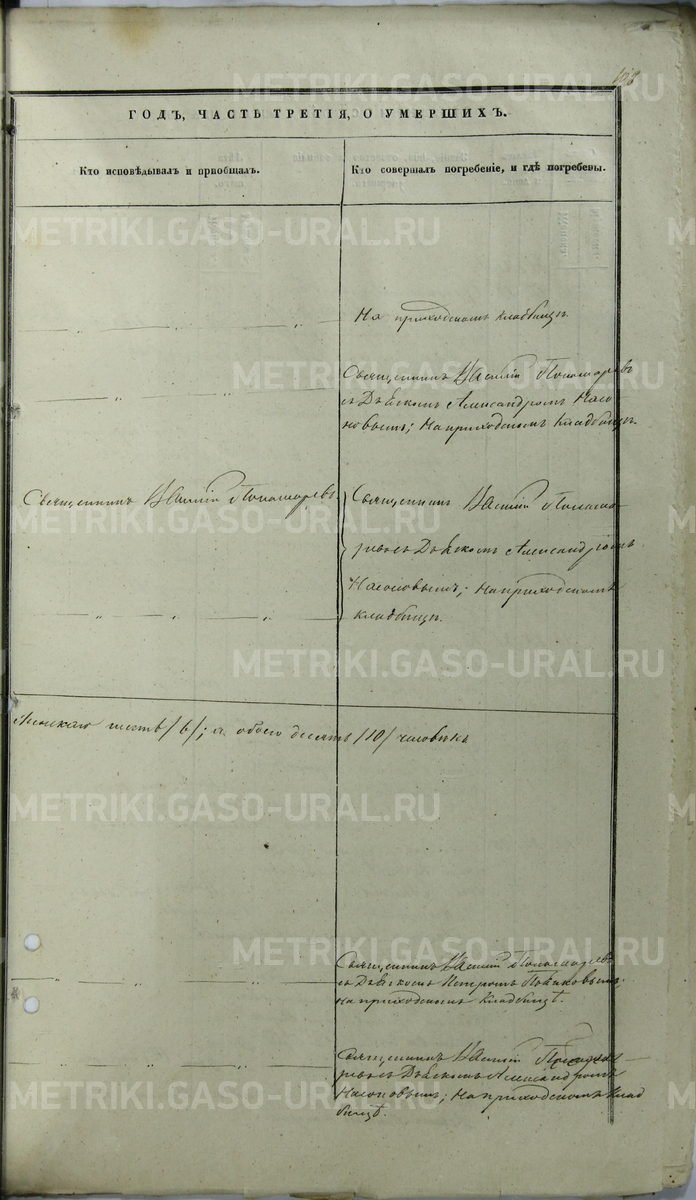 108
ГОДЪ, ЧАСТЬ ТРЕТІЯ, О УМЕРШИХЪ.
Кто исповѣдывалъ и пріобщалъ.
Кто совершалъ погребеніе, и гдѣ погребены.
На приходскомъ кладбищѣ.
Священникъ Василій Пономаревъ
съ Дьякомъ Александромъ Насо-
новымъ; На приходскомъ кладбищѣ.
Священникъ Василій Пономаревъ.
Священникъ Василій Понома-
ревъ съ Дьякомъ Александромъ
Насоновымъ; На приходскомъ
кладбищѣ.
Женскаго шесть /6/; а обоего десять /10/ человѣкъ
Священникъ Василій Пономаревъ
съ Дьякомъ Петромъ
на приходскомъ кладбищѣ.
Священникъ Василій Понома-
ревъ съ Дьякомъ Александромъ
Насоновымъ; На приходскомъ клад
бищѣ.
METRIKI.GASO-URAL.RU